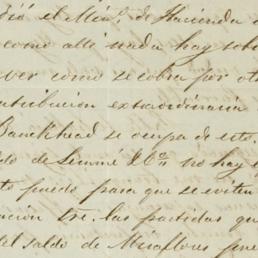 el Min.º de Hacienda
como allí nada hay sob
ver como se cobra por ot
tribucion extraordinaria
Bankhead se ocupa de esto.
do de no hay
to puedo para que se eviten
cion las partidas qu
el saldo de Miraflores